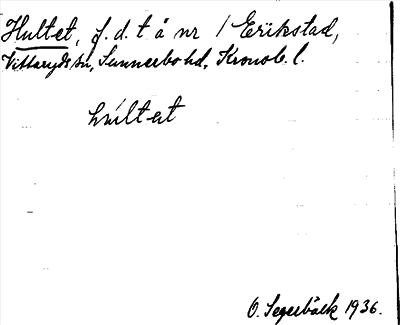 Hultet, f. d. t å nr 1 Erikstad,
Vittaryds sn, Sunnerbo hd, Kronob. l.
O. Segerbäck 1936.